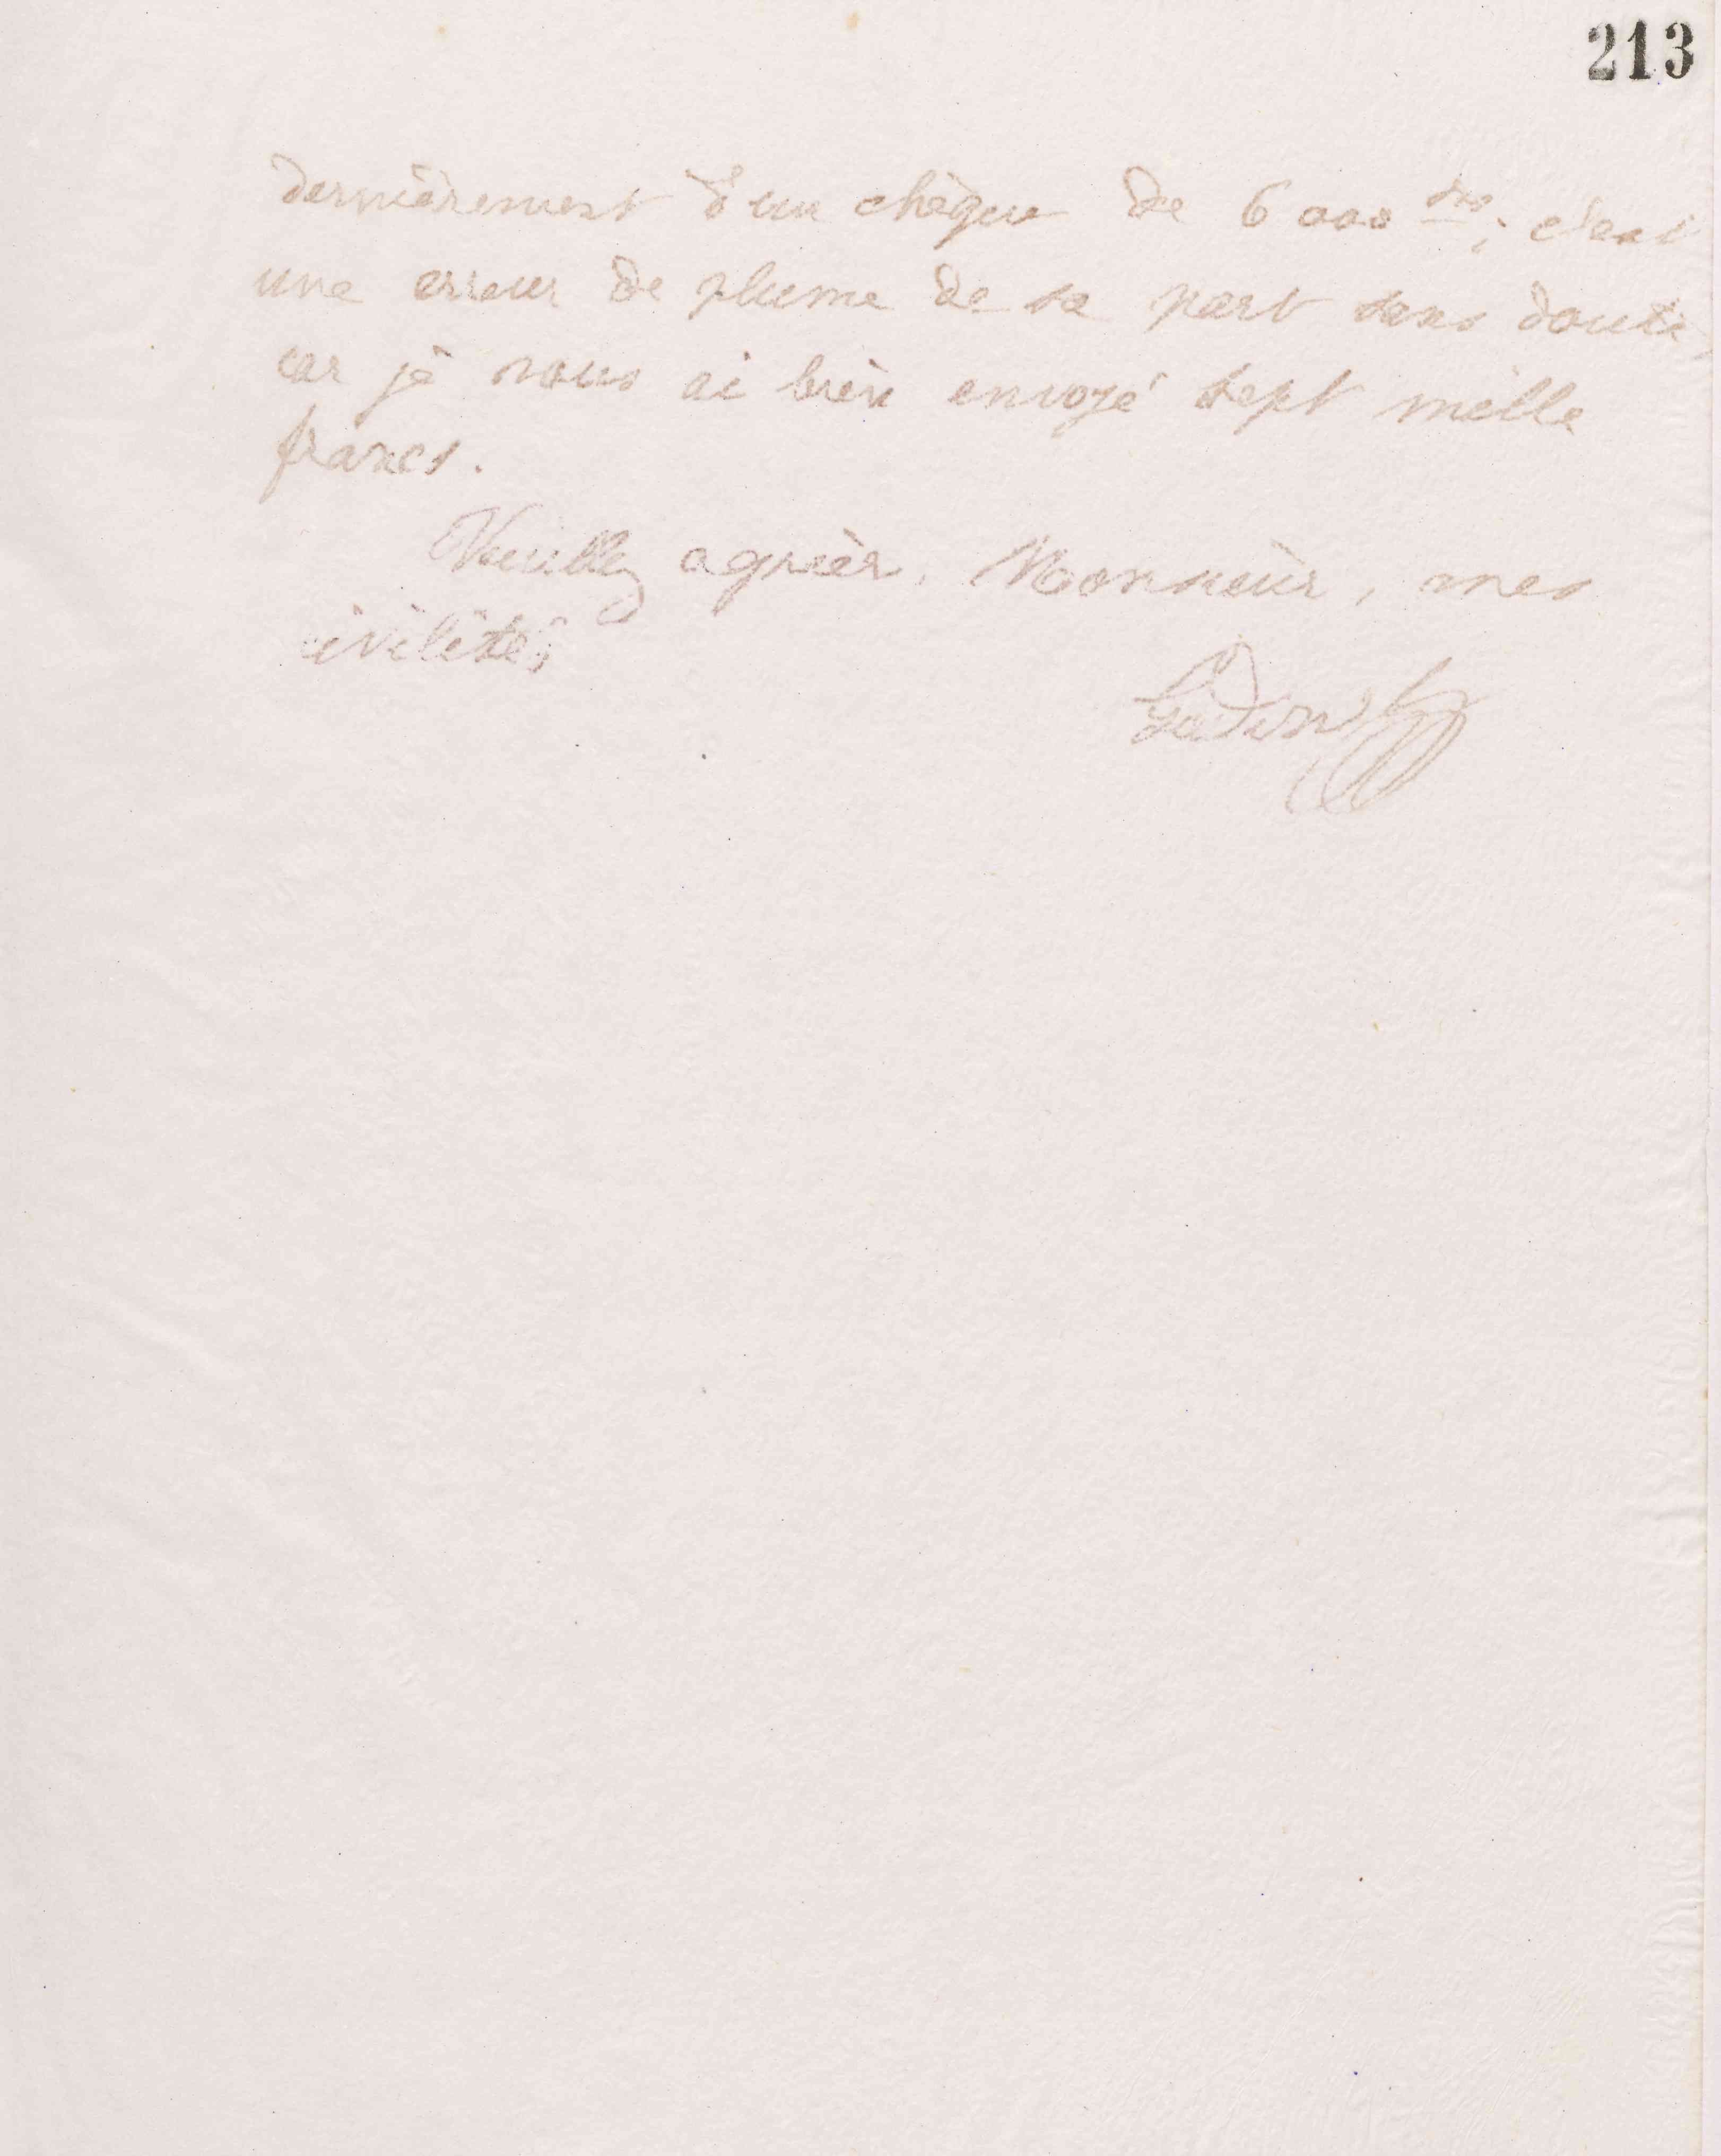 213
dernièrement d'un chèque de 6 000 frs; c'est
une erreur de plume de sa part sans doute,
car je vous ai bien envoyé sept mille
francs.
Veuillez agréer, Monsieur, mes
civilités
Godin